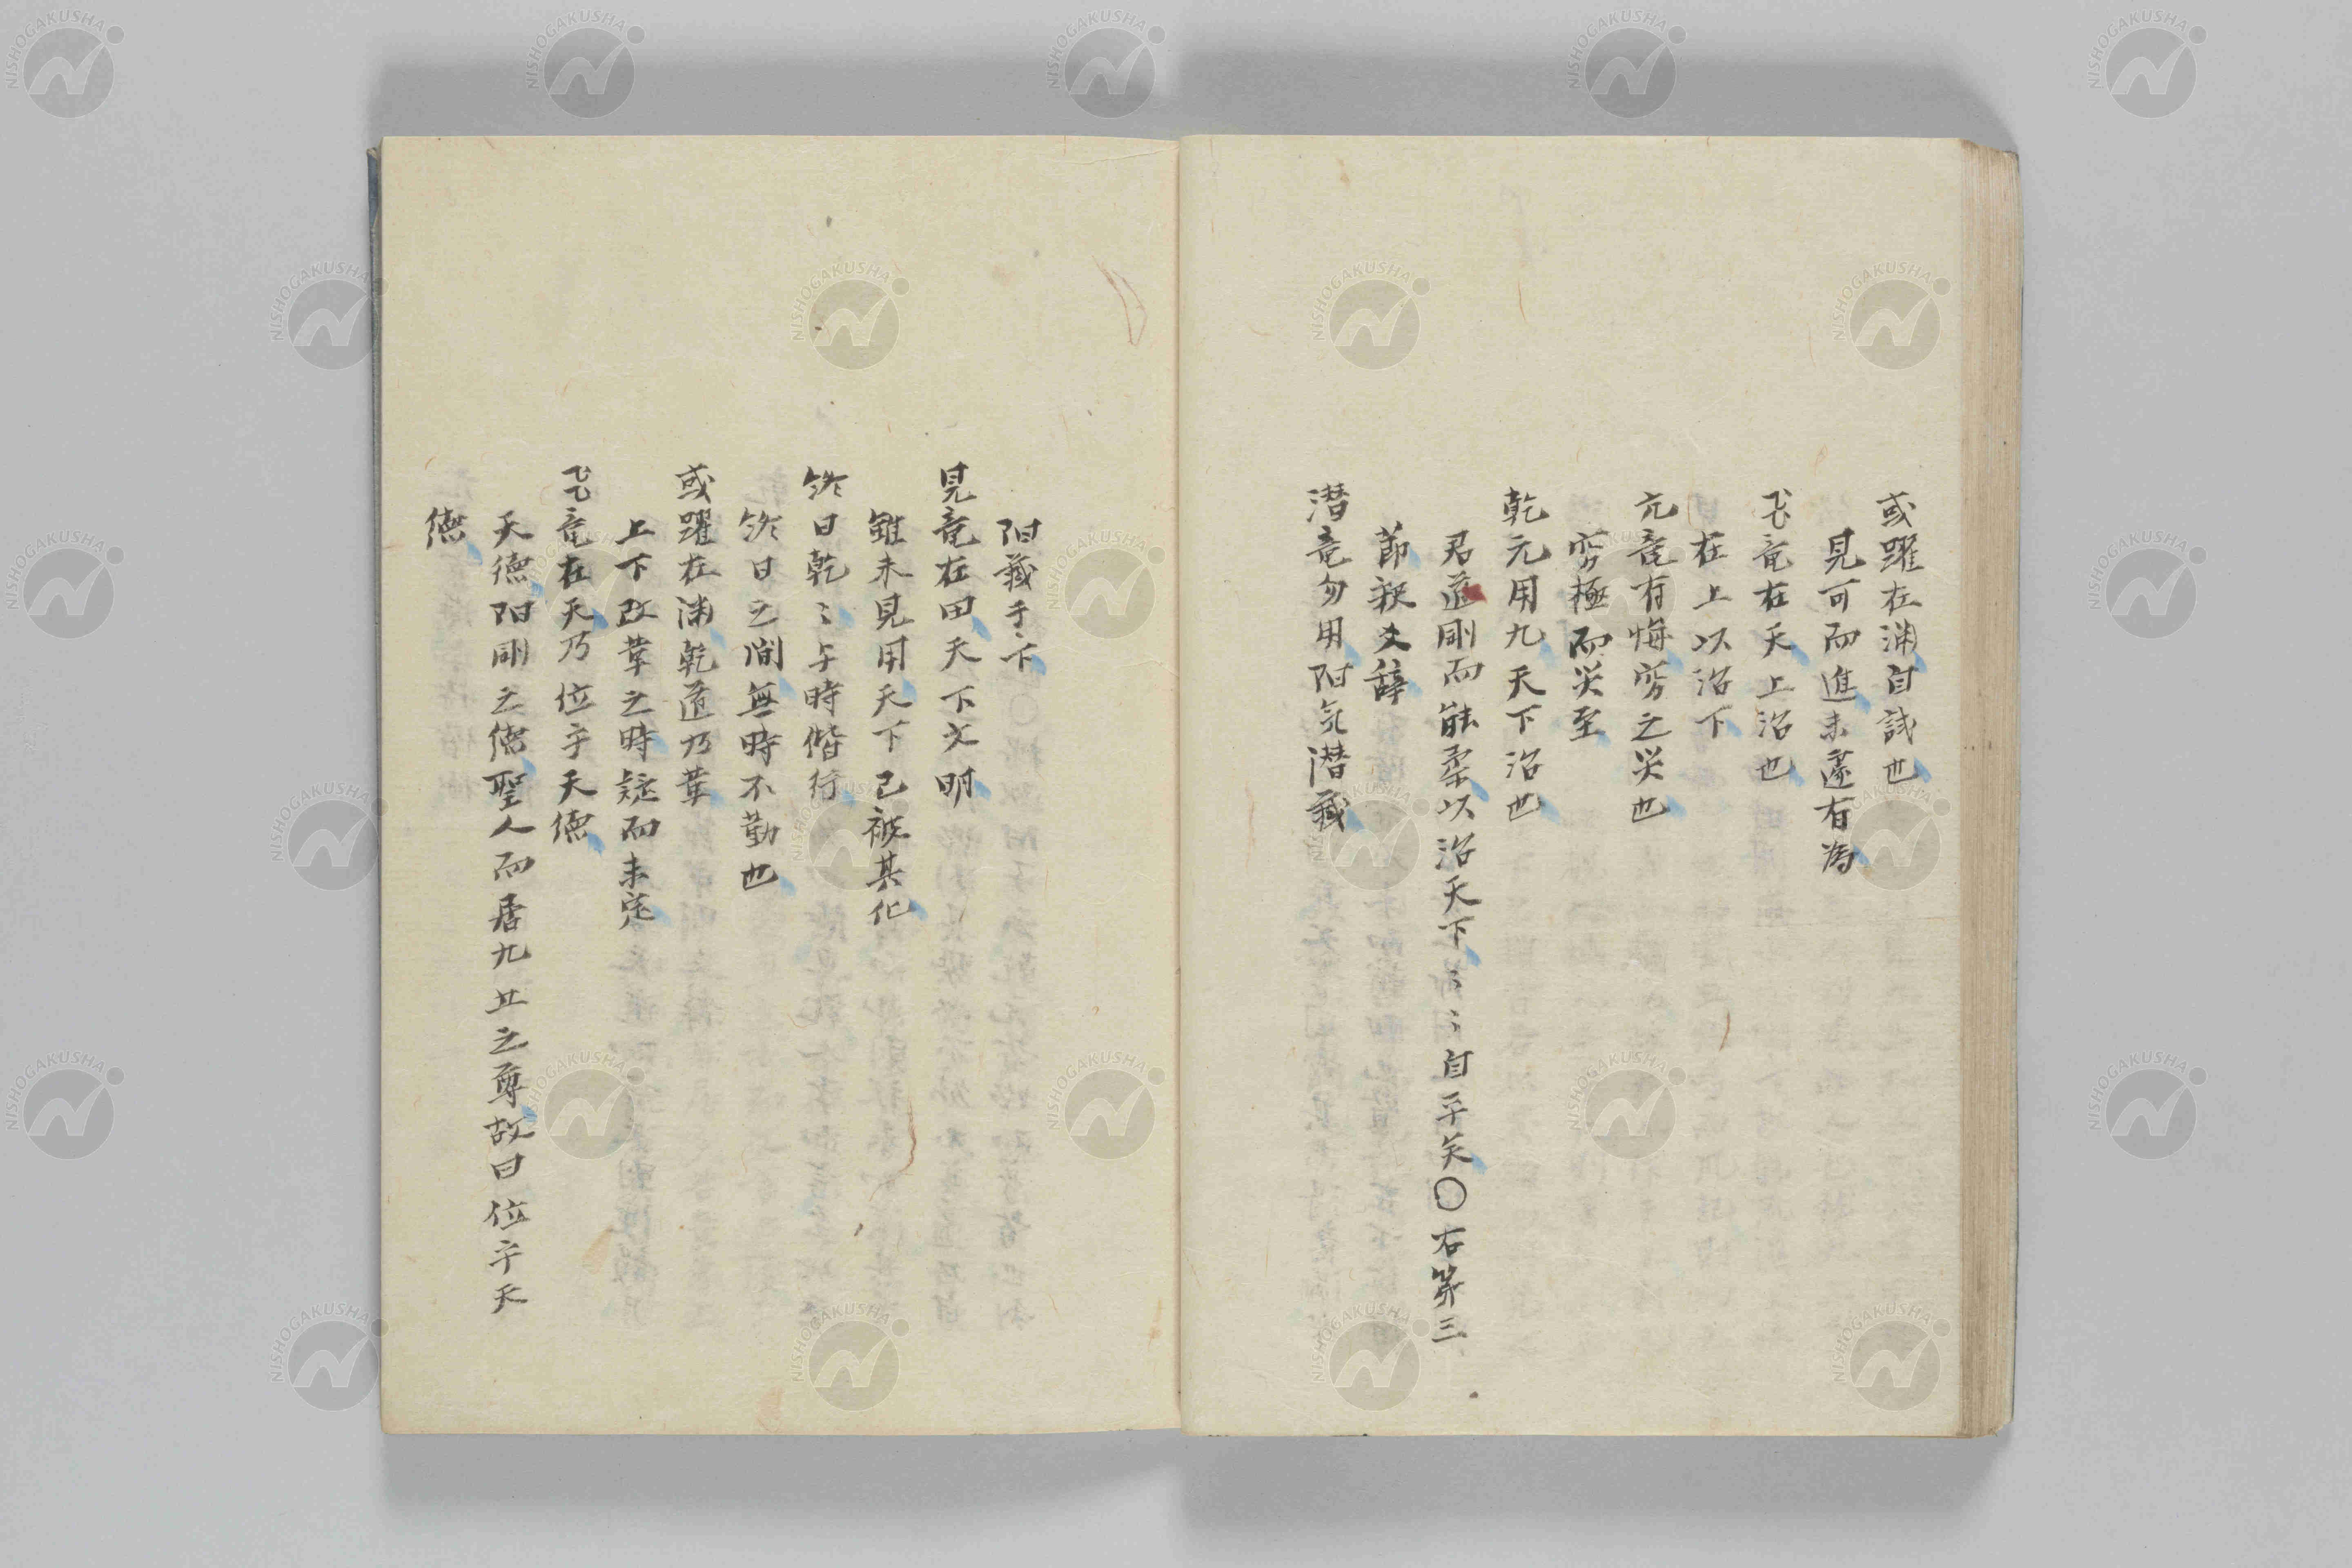 或躍在渊自試也
見可而進未遽有為
飞竜在天上治也
在上以治下
亢竜有悔窮之災也
窮極而災至
乾元用九天下治也
君道剛而能柔以治天下〻〻自平矣〇右第三
節釈爻辞
潜竜勿用阳気潜蔵
阳蔵于下
見竜在田天下文明
雖未見用天下已被其化
終日乾〻与時偕行
終日之間無時不勤也
或躍在渊乾道乃革
上下改革之時疑而未定
飞竜在天乃位乎天德
天德阳剛之德聖人而居九五之尊故曰位乎天
德